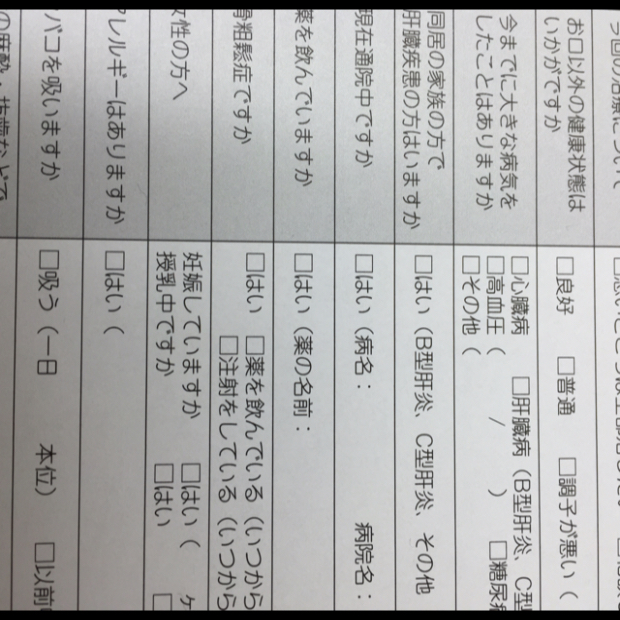 今回の治療について
お口以外の健康状態は
いかがですか
□良好 □普通 □調子が悪い（
今までに大きな病気を
したことはありますか
□心臓病 □肝臓病（B型肝炎、C型
□高血圧（ / ） □糖尿病
□その他（
同居の家族の方で
肝臓疾患の方はいますか
□はい（B型肝炎、C型肝炎、その他
現在通院中ですか
□はい（病名： 病院名：
薬を飲んでいますか
□はい（薬の名前：
骨粗鬆症ですか
□はい □薬を飲んでいる（いつから
□注射をしている（いつから
女性の方へ
妊娠していますか □はい（ ケ
授乳中ですか □はい □
アレルギーはありますか
□はい（
バコを吸いますか
□吸う（一日 本位） □以前
の麻酔・抜歯などで